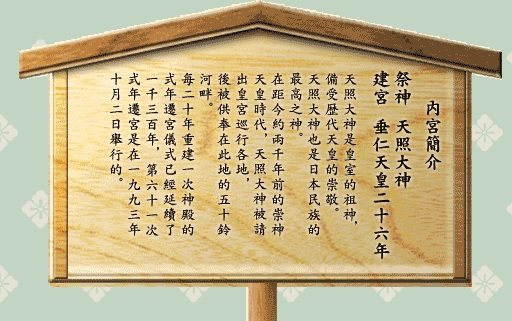 內宮簡介
祭神 天照大神
建宮 垂仁天皇二十六年
天照大神是皇室的祖神，
備受歷代天皇的崇敬。
天照大神也是日本民族的
最高之神。
在距今約兩千年前的崇神
天皇時代，天照大神被請
出皇宮巡行各地，
後被供奉在此地的五十鈴
河畔。
每二十年重建一次神殿的
式年遷宮儀式已經延續了
一千三百年，第六十一次
式年遷宮是在一九九三年
十月二日舉行的。